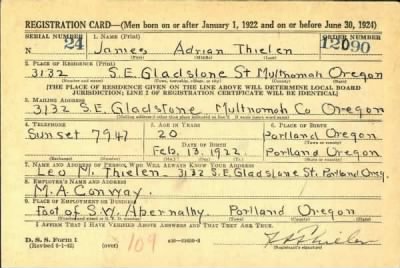 REGISTRATION CARD—(Men born on or after January 1, 1922 and on or before June 30, 1924)
SERIAL NUMBER 1. NAME (Print) ORDER NUMBER
N 24 James Adrian Thielen 12090
2. PLACE OF RESIDENCE (Print)
3132 S.E. Gladstone St. Multnomah Oregon
(Number and street) (Town, township, village, or city) (County) (State)
[THE PLACE OF RESIDENCE GIVEN ON THE LINE ABOVE WILL DETERMINE LOCAL BOARD
JURISDICTION; LINE 2 OF REGISTRATION CERTIFICATE WILL BE IDENTICAL]
3. MAILING ADDRESS
3132 S.E. Gladstone Multnomah Co Oregon
[Mailing address if other than place indicated on line 2. If same insert word same]
4. TELEPHONE 5. AGE IN YEARS 6. PLACE OF BIRTH
Sunset 7947 20 Portland
DATE OF BIRTH (Town or county)
Feb. 13, 1922 Oregon
(Exchange) (Number) (Mo.) (Day) (Yr.) (State or country)
7. NAME AND ADDRESS OF PERSON WHO WILL ALWAYS KNOW YOUR ADDRESS
Leo M. Thielen - 3132 S.E. Gladstone St. Portland Oreg.
8. EMPLOYER'S NAME AND ADDRESS
M.A. Conway.
9. PLACE OF EMPLOYMENT OR BUSINESS
Foot of S.W. Abernathy Portland Oregon
(Number and street or R. F. D. number) (Town) (County) (State)
I AFFIRM THAT I HAVE VERIFIED ABOVE ANSWERS AND THAT THEY ARE TRUE.
D. S. S. Form 1
(Revised 6-1-42) (over) 109
(Registrant's signature)